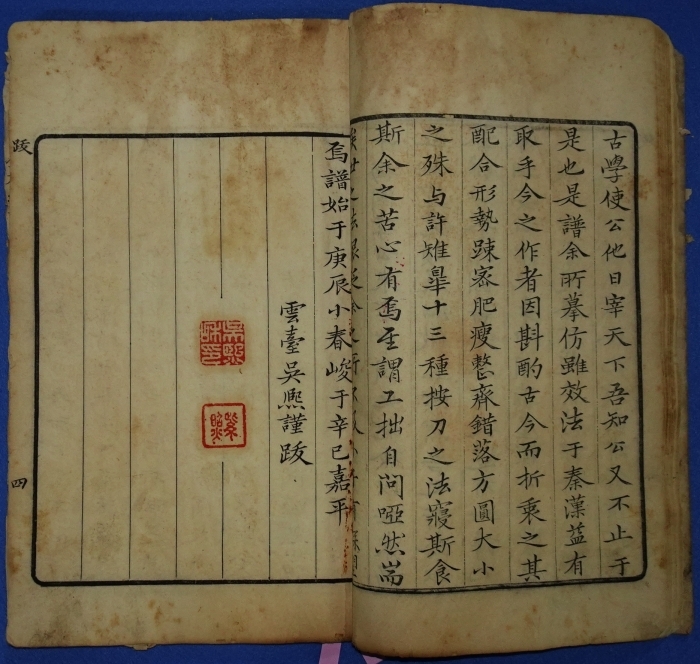 古學使公他日宰天下吾知公又不止于
是也是譜余所摹仿雖效法于秦漢葢有
取乎今之作者因斟酌古今而折衷之其
配合形勢踈宻肥瘦整齊錯落方圓大小
之殊与許雉皐十三種按刀之法寢斯食
斯余之苦心有焉至謂工拙自问啞然耑
世之法眼
焉譜始于庚辰小春峻于辛巳嘉平
雲臺吳熈謹跋
跋
四